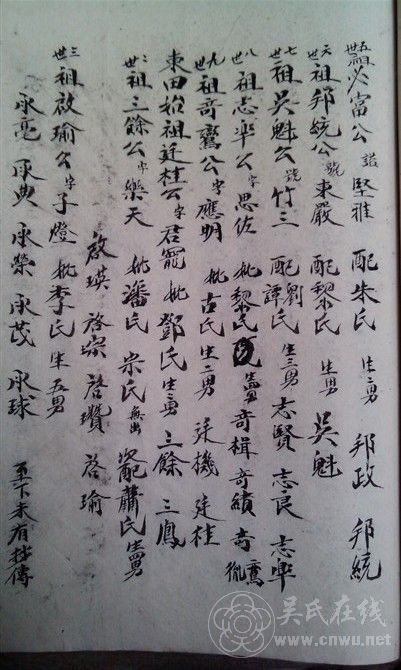 五世祖必富公諡堅雅 配朱氏 生二男 邦政 邦統
六世祖邦統公號東嚴 配黎氏 生男 吳魁
七世祖吳魁公號竹三 配劉氏譚氏 生三男 志賢 志良 志率
八世祖志率公字思佐 妣黎氏 生四男 奇楫 奇績 奇
九世祖奇鸞公字應明 妣古氏 生二男 廷機 廷桂
東田始祖廷桂公字君寵 妣鄧氏 生二男 三餘 三鳳
二世祖三餘公字樂天 妣潘氏 宗氏無出 配蕭氏 生四男
啟瑛 啓崇 啓瓚 啓瑜
三世祖啟瑜公字子燈 妣李氏 生五男
承亮 承典 承榮 承茂 承球 至下未有抄傳
吴氏在线
www.cnwu.net